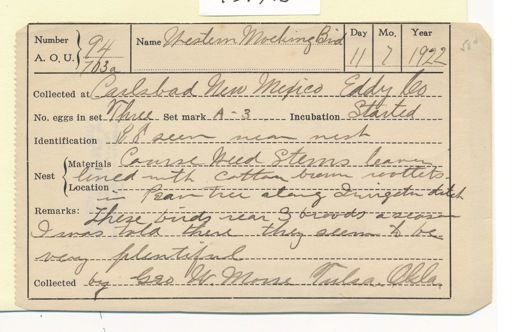 Number A.O.U. 94 / 703a Name Western Mocking Bird Day 11 Mo. 7 Year 1922
Collected at Carlsbad New Mexico Eddy Co
No. eggs in set Three Set mark A-3 Incubation Started
Identification seen near nest
Nest Materials Course Weed Stems leaves
lined with cotton brown rootlets
Location in Pear tree along Irrigation ditch
Remarks: These birds rear 3 broods a season
I was told there they seem to be
very plentiful
Collected by Geo W. Morse Tulsa. Okla.